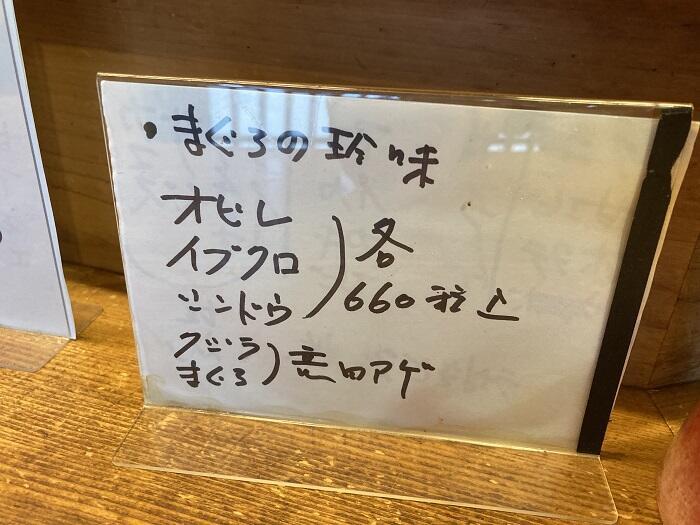 ・まぐろの珍味
オビレ
イブクロ
シンドウ
各
660税込
クジラ
まぐろ
竜田アゲ